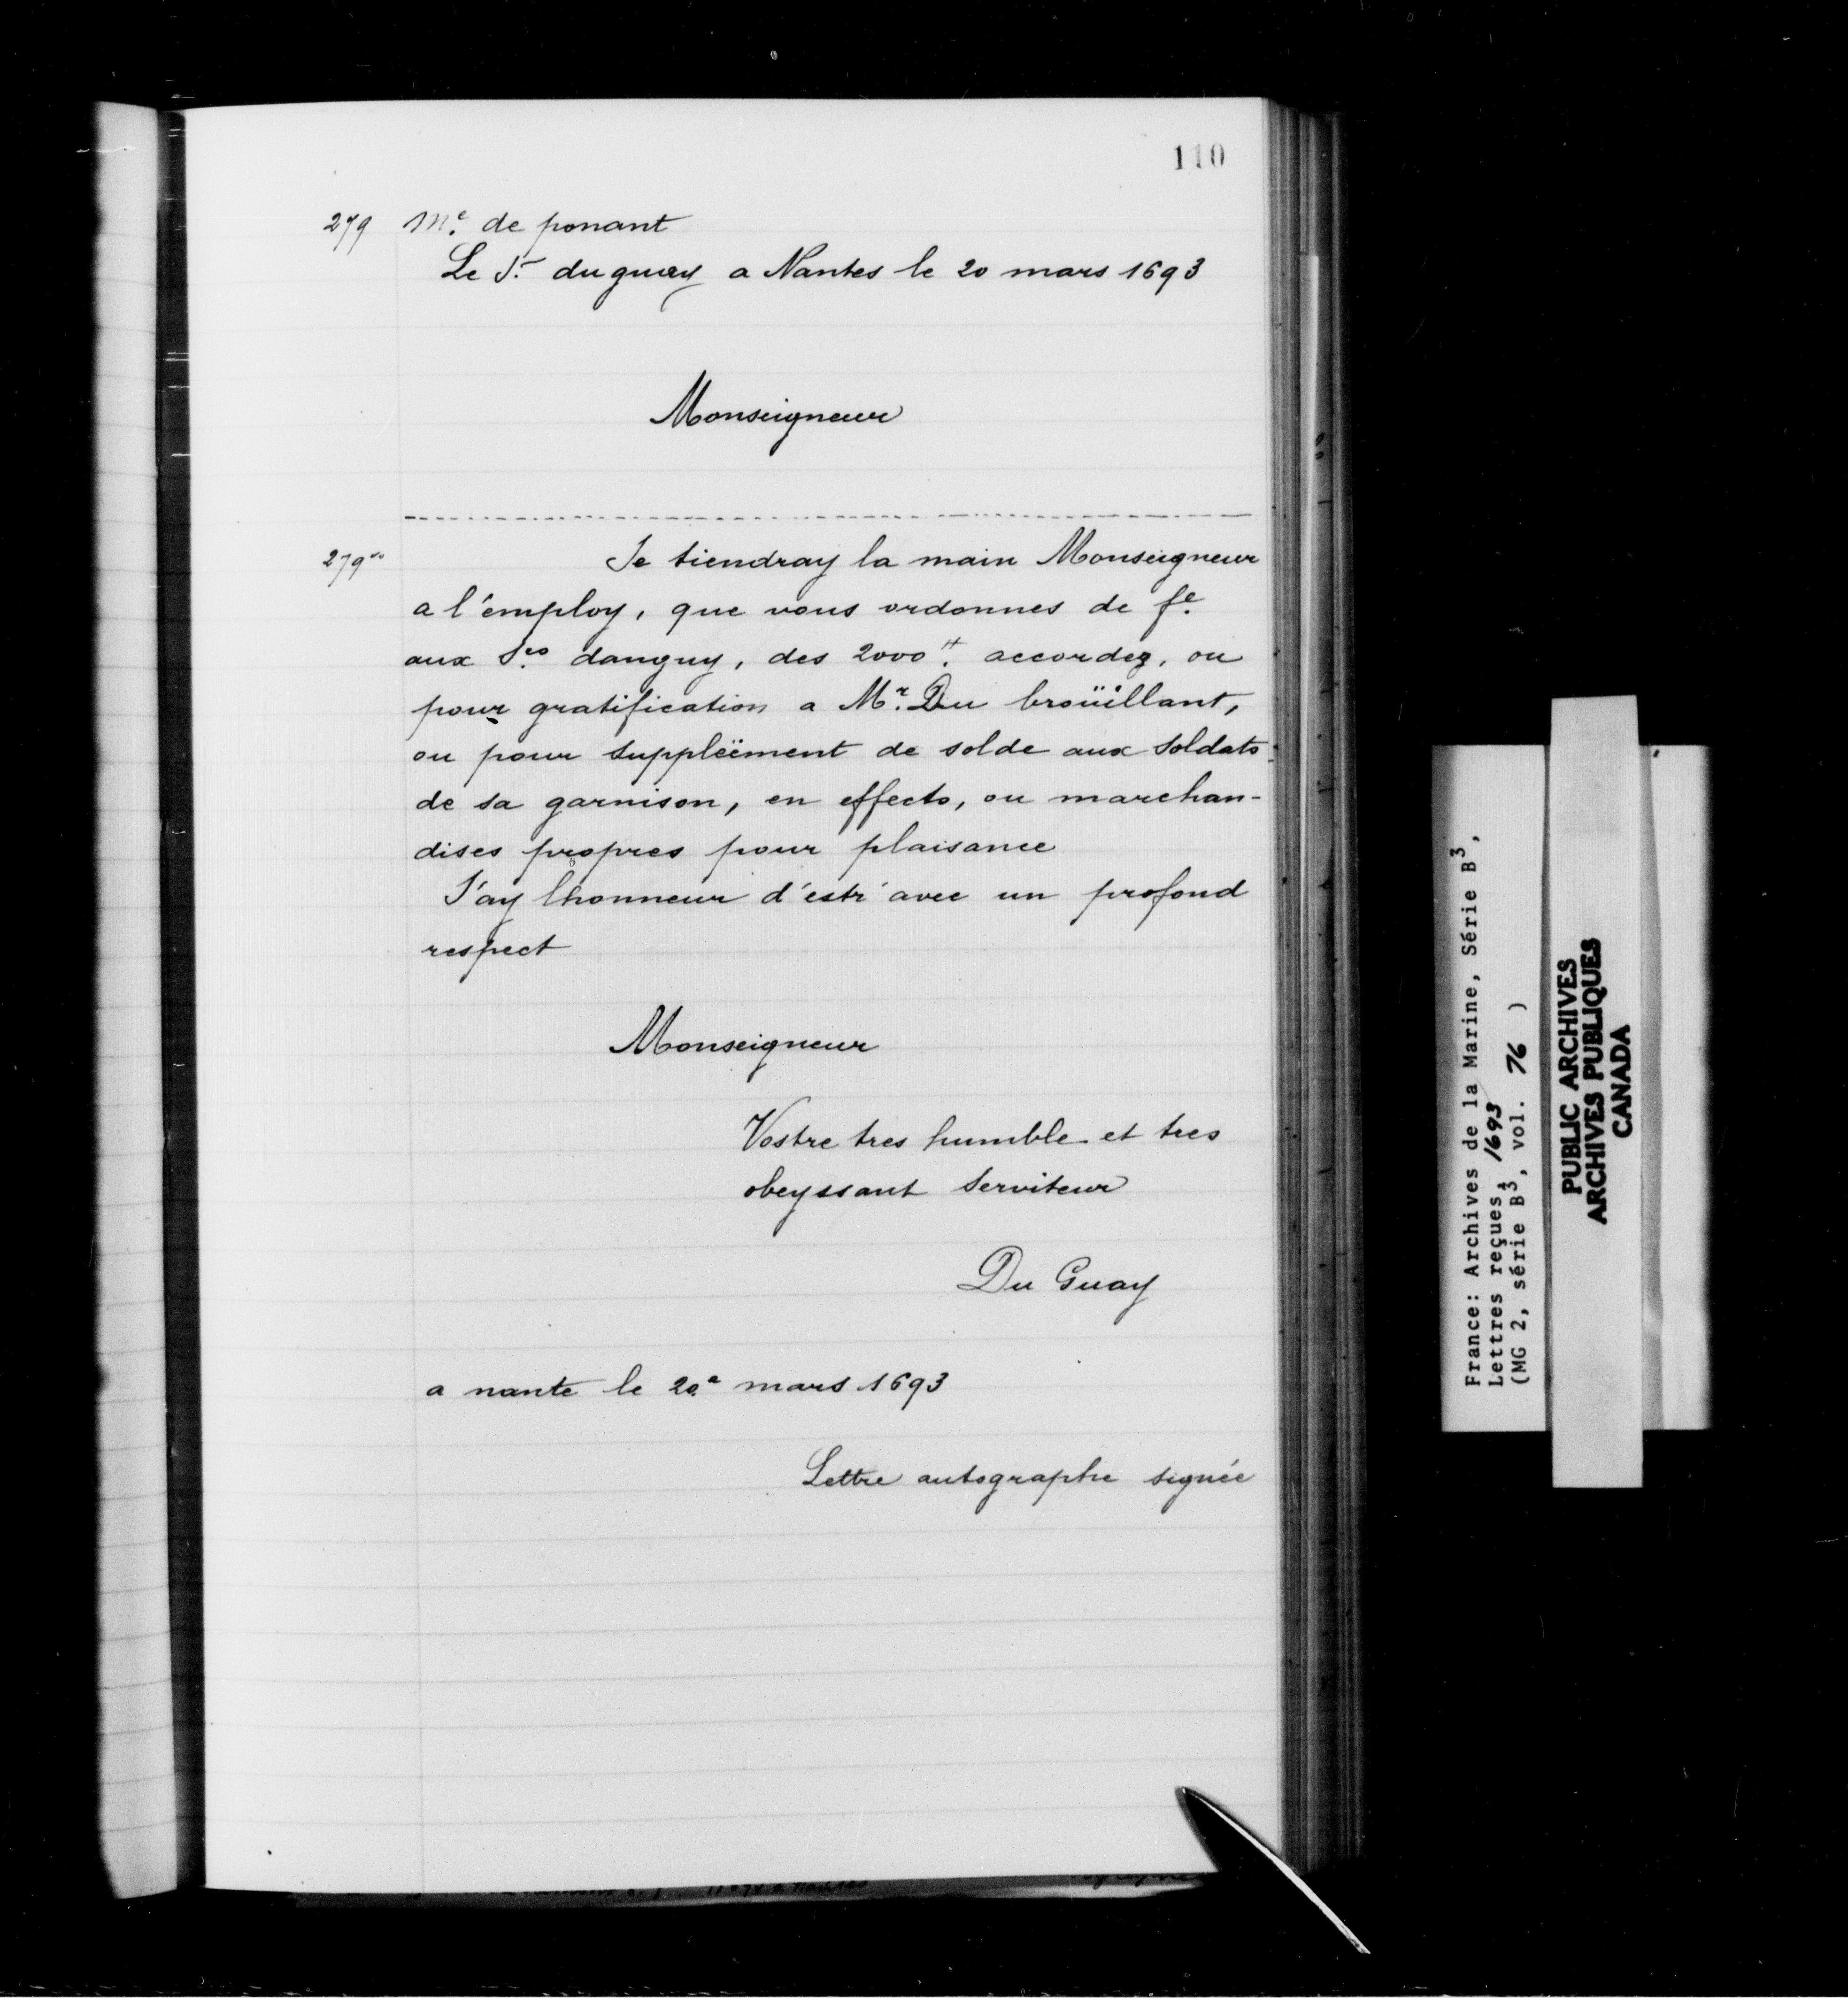 110
279 Me. de ponant
Le Sr. duguay a Nantes le 20 mars 1693
Monseigneur
279vo Je tiendray la main Monseigneur
a l'employ, que vous ordonnes de fe.
aux Srs. danguy, des 2000tt. accordez, ou
pour gratification a Mr. Du broüillant,
ou pour suppleement de solde aux soldats
de sa garnison, en effects, ou marchan-
dises propres pour plaisance
J'ay lhonneur d'estr'avec un profond
respect
Monseigneur
Vostre tres humble et tres
obeyssant serviteur
Du Guay
a nante le 20.e mars 1693
Lettre autographe signée
France: Archives de la Marine, Série B3,
Lettres reçues, 1693
(MG 2, série B3, vol. 76 )
PUBLIC ARCHIVES
ARCHIVES PUBLIQUES
CANADA